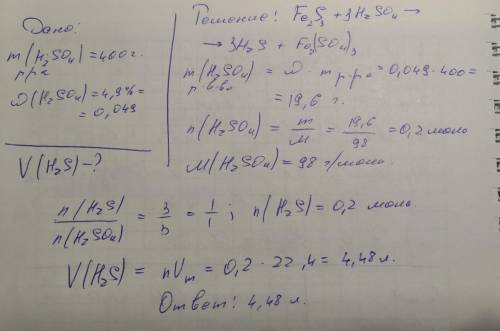 Дано:
m(H₂SO₄) = 400 г.
р-ра
ω(H₂SO₄) = 4,9% =
= 0,049
V(H₂S) - ?
Решение: Fe₂S₃ + 3H₂SO₄ →
→ 3H₂S + Fe₂(SO₄)₃
m(H₂SO₄) = ω · m р-ра = 0,049·400 =
р. в-ва
= 19,6 г.
n(H₂SO₄) = m/M = 19,6/98 = 0,2 моль
M(H₂SO₄) = 98 г/моль.
n(H₂S)/n(H₂SO₄) = 3/3 = 1/1 ; n(H₂S) = 0,2 моль.
V(H₂S) = nVm = 0,2 · 22,4 = 4,48 л.
Ответ: 4,48 л.